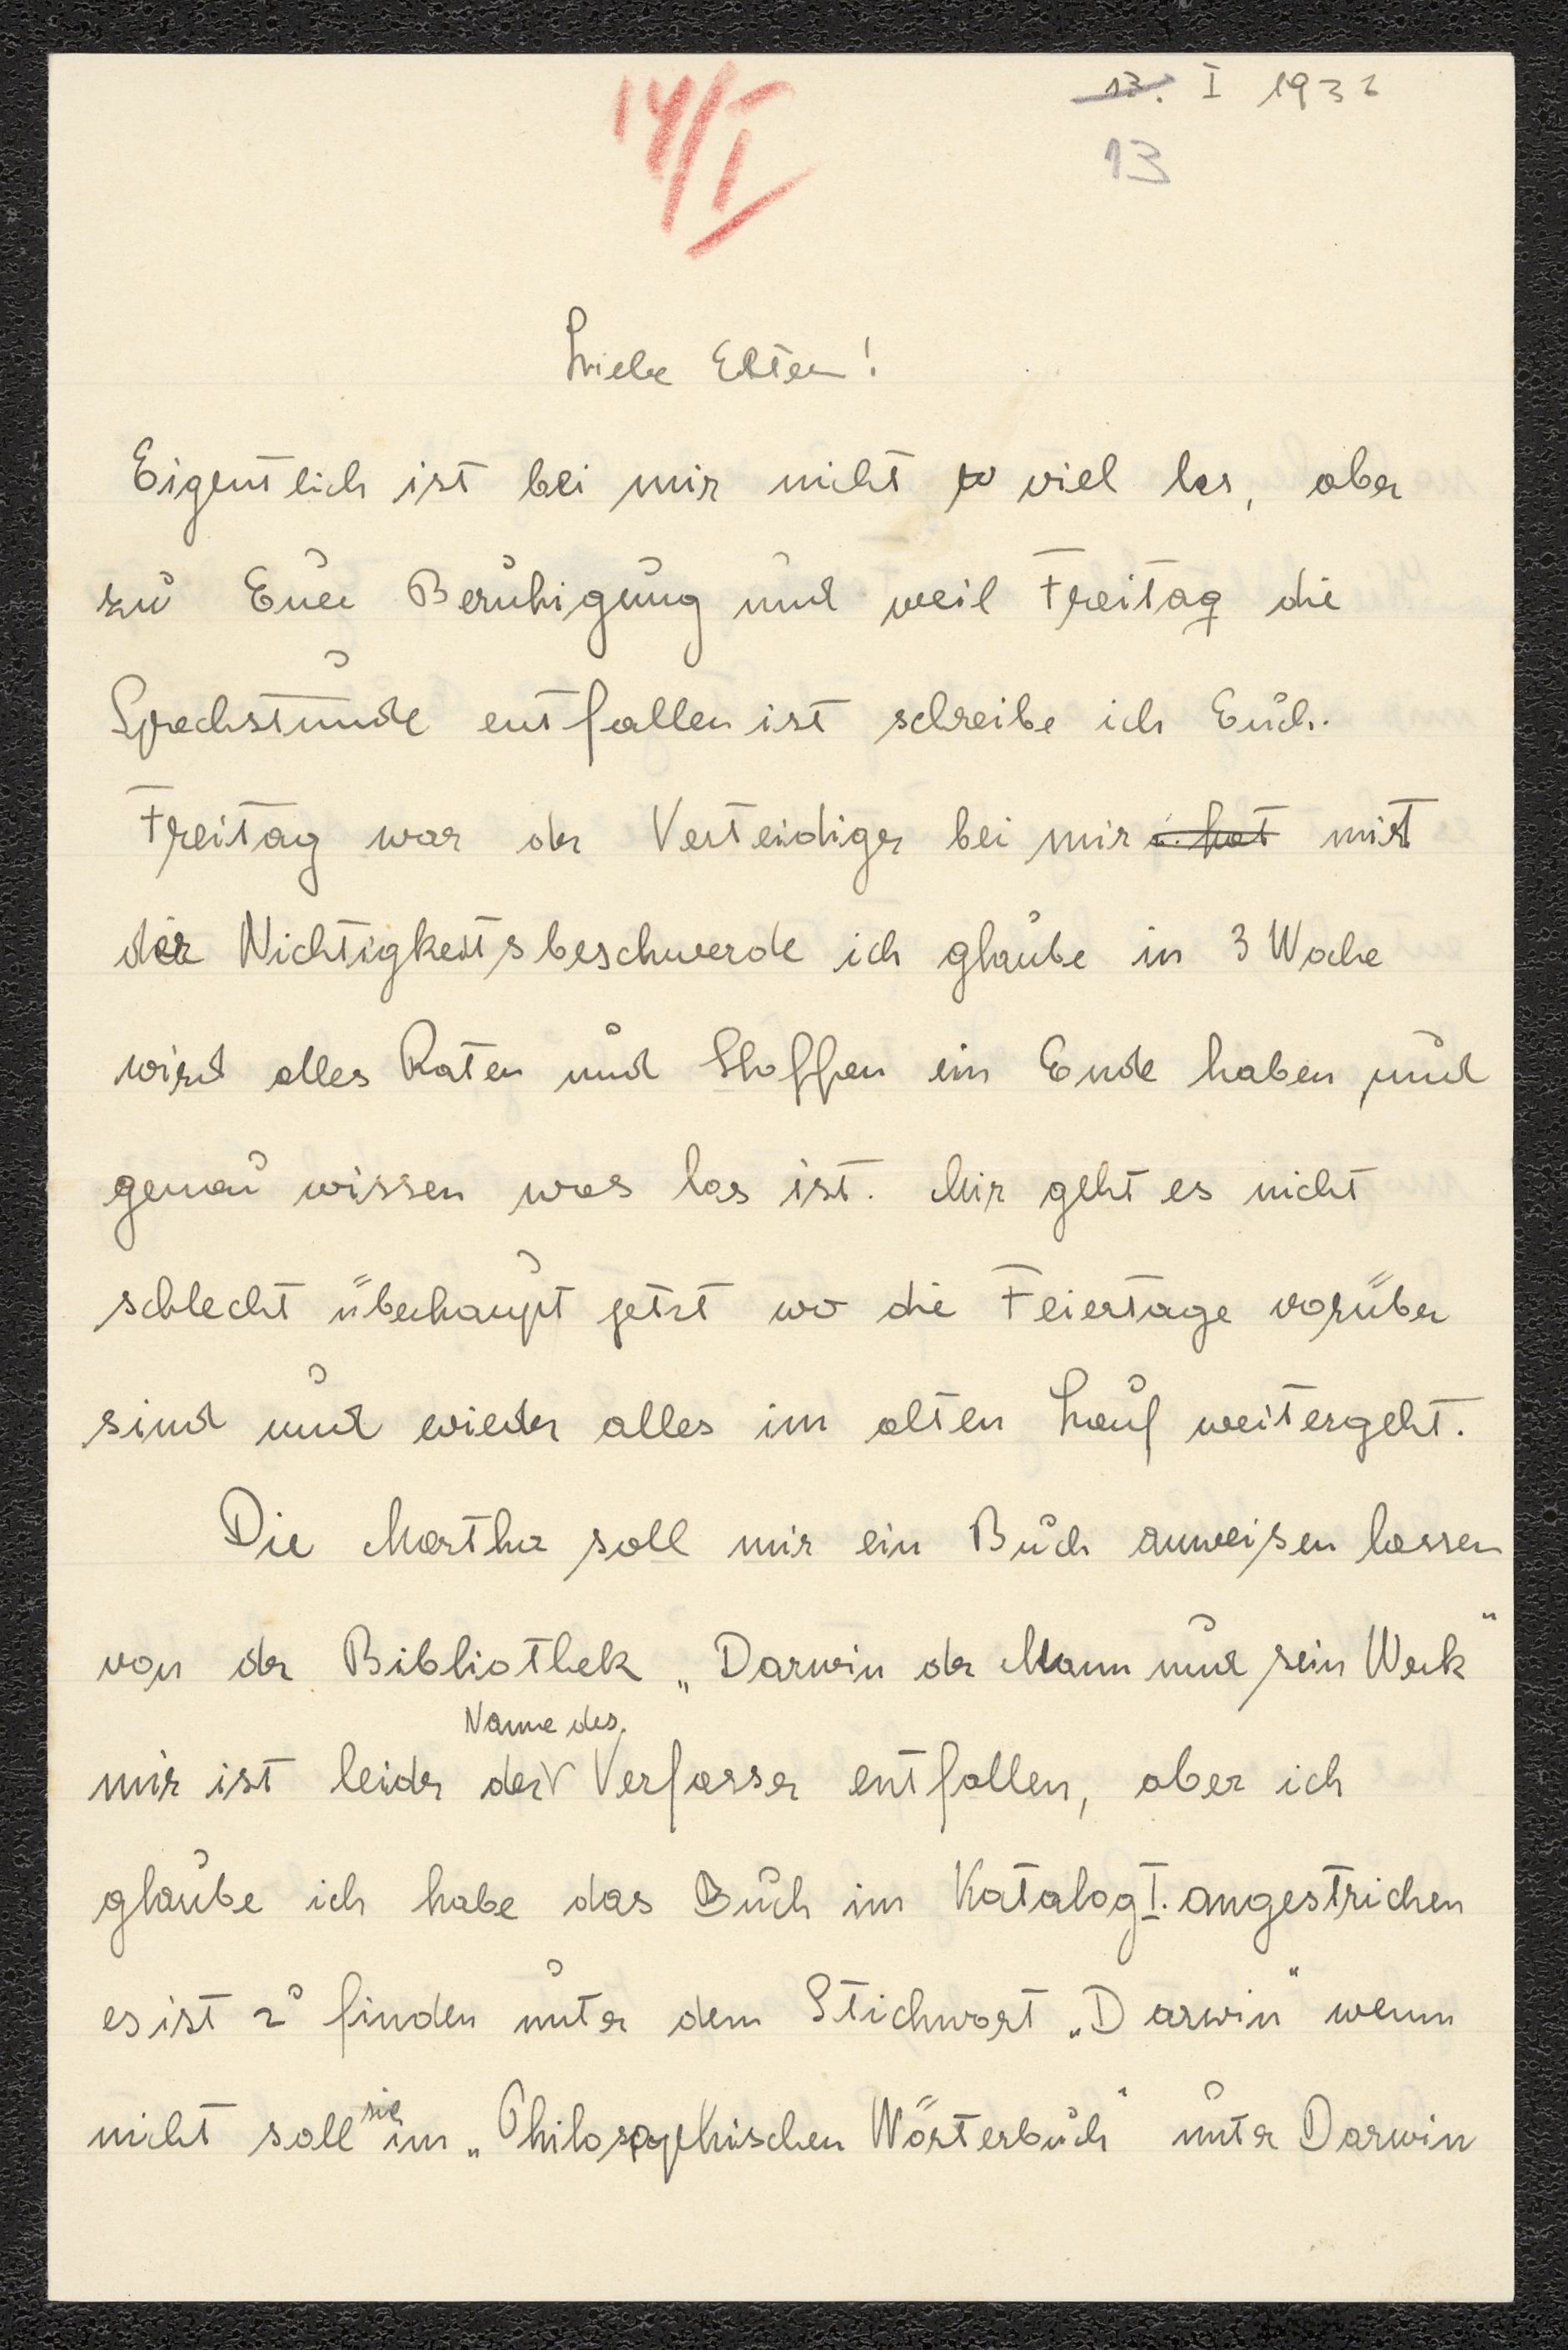 14/I
13. I 1932
13
Liebe Eltern!
Eigentlich ist bei mir nicht so viel los, aber
zu Euer Beruhigung und weil Freitag die
Sprechstunde entfallen ist schreibe ich Euch.
Freitag war der Verteidiger bei mir u. hat mit
der Nichtigkeitsbeschwerde ich glaube in 3 Woche
wird alles Raten und Hoffen ein Ende haben und
genau wissen was los ist. Mir geht es nicht
schlecht überhaupt jetzt wo die Feiertage vorüber
sind und wieder alles im alten Lauf weitergeht.
Die Martha soll mir ein Buch anweisen lassen
von der Bibliothek „Darwin der Mann und sein Werk"
Name des
mir ist leider der Verfasser entfallen, aber ich
glaube ich habe das Buch im Katalog I. angestrichen
es ist zu finden unter dem Stichwort „Darwin" wenn
nicht soll sie im „Philosophischen Wörterbuch" unter Darwin